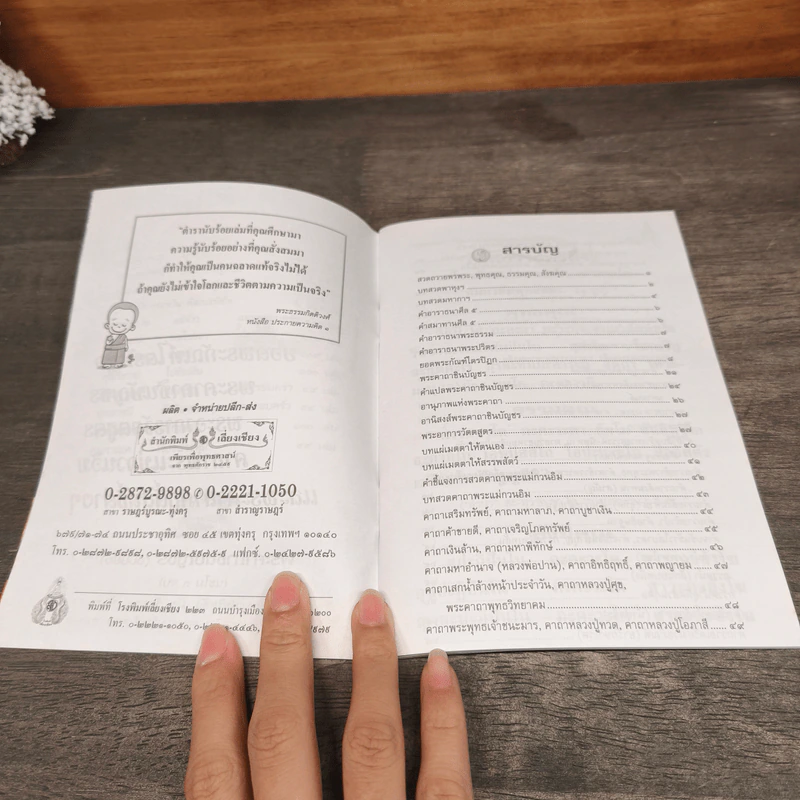 "ตำรานับร้อยเล่มที่คุณศึกษามา
ความรู้นับร้อยอย่างที่คุณสั่งสมมา
ก็ทำให้คุณเป็นคนฉลาดแท้จริงไม่ได้
ถ้าคุณยังไม่เข้าใจโลกและชีวิตตามความเป็นจริง"
พระธรรมกิตติวงศ์
หนังสือ ประกายความคิด ๑
ผลิต • จำหน่ายปลีก-ส่ง
สำนักพิมพ์ เลี่ยงเชียง
เพียรเพื่อพุทธศาสน์
0-2872-9898 ✆ 0-2221-1050
สาขา ราษฎร์บูรณะ-ทุ่งครุ สาขา สำราญราษฎร์
๖๗๙/๗๑-๗๔ ถนนประชาอุทิศ ซอย ๔๕ เขตทุ่งครุ กรุงเทพฯ ๑๐๑๔๐
โทร. ๐-๒๘๗๒-๙๘๙๘, ๐-๒๘๗๒-๕๙๗๕-๙ แฟกซ์. ๐-๒๔๒๗-๙๕๘๖
พิมพ์ที่ โรงพิมพ์เลี่ยงเชียง ๒๒๓ ถนนบำรุงเมือง
โทร. ๐-๒๒๒๑-๑๐๕๐,
สารบัญ
สวดถวายพรพระ, พุทธคุณ, ธรรมคุณ, สังฆคุณ
บทสวดพาหุงฯ
บทสวดมหากาฯ
คำอาราธนาศีล ๕
คำสมาทานศีล ๕ ๖
คำอาราธนาพระธรรม ๗
คำอาราธนาพระปริตร ๗
ยอดพระกัณฑ์ไตรปิฎก ๘
พระคาถาชินบัญชร ๒๑
คำแปลพระคาถาชินบัญชร ๒๔
อานุภาพแห่งพระคาถา ๒๖
อานิสงส์พระคาถาชินบัญชร ๒๗
พระอาการวัตตสูตร ๒๗
บทแผ่เมตตาให้ตนเอง ๔๐
บทแผ่เมตตาให้สรรพสัตว์ ๔๑
คำชี้แจงการสวดคาถาพระแม่กวนอิม ๔๒
บทสวดคาถาพระแม่กวนอิม ๔๓
คาถาเสริมทรัพย์, คาถามหาลาภ, คาถาบูชาเงิน ๔๔
คาถาค้าขายดี, คาถาเจริญโภคทรัพย์ ๔๕
คาถาเงินล้าน, คาถามหาพิทักษ์ ๔๖
คาถามหาอำนาจ (หลวงพ่อปาน), คาถาอิทธิฤทธิ์, คาถาพญายม ๔๗
คาถาเสกน้ำล้างหน้าประจำวัน, คาถาหลวงปู่ศุข,
พระคาถาพุทธวิทยาคม ๔๘
คาถาพระพุทธเจ้าชนะมาร, คาถาหลวงปู่ทวด, คาถาหลวงปู่โอภาสี ๔๙